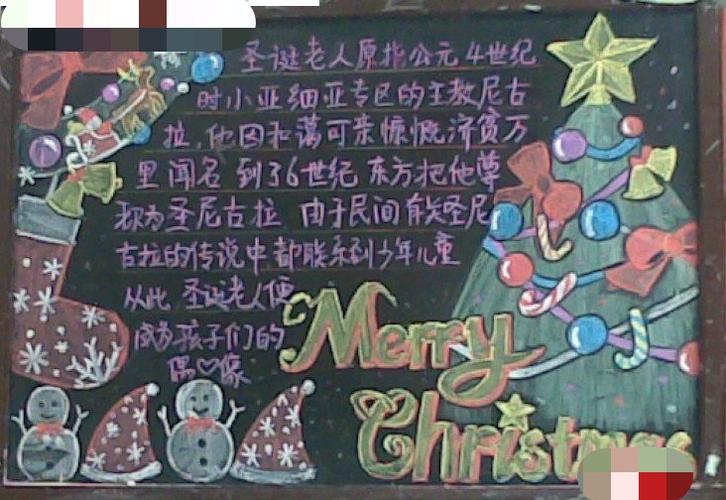 圣诞老人原指公元4世纪
时小亚细亚专区的主教尼古
拉,他因和蔼可亲慷慨济贫万
里闻名 到了6世纪 东方把他尊
称为圣尼古拉 由于民间有关圣尼
古拉的传说中都联系到少年儿童
从此 圣诞老人便
成为孩子们的
偶♡像
Merry
Christmas